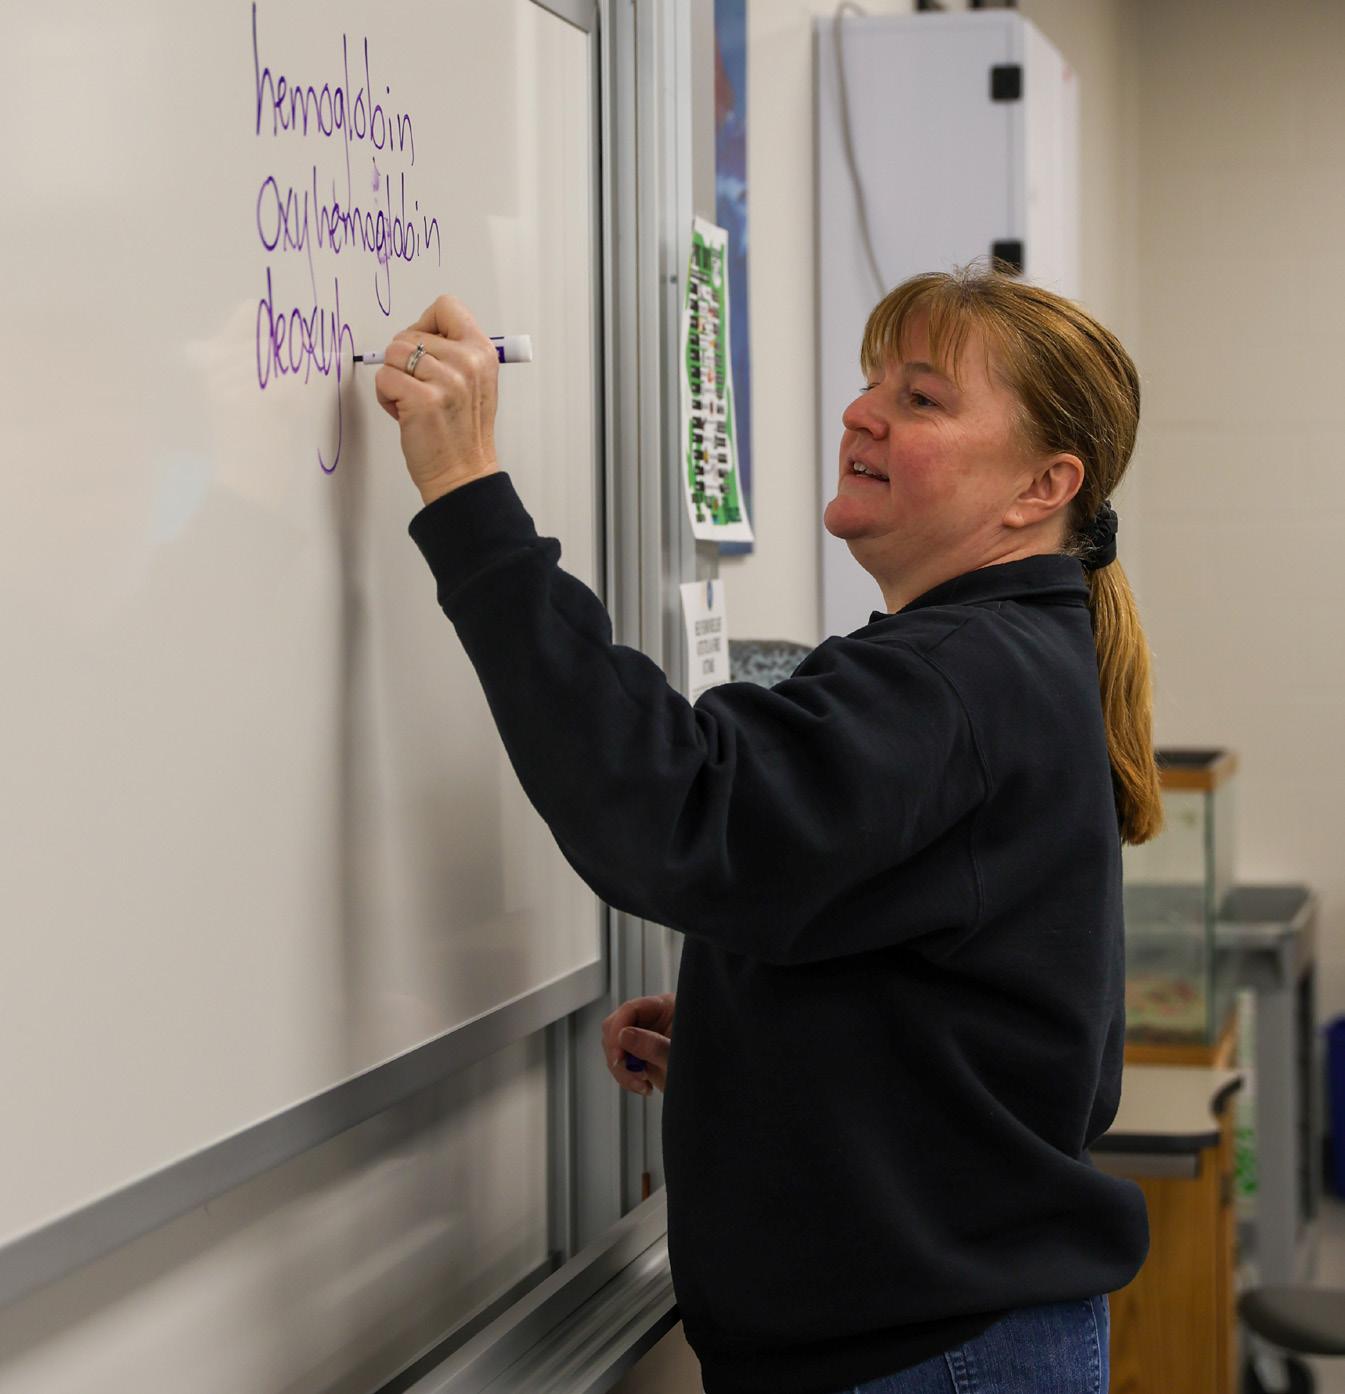 hemoglobin
oxyhemoglobin
deoxyh